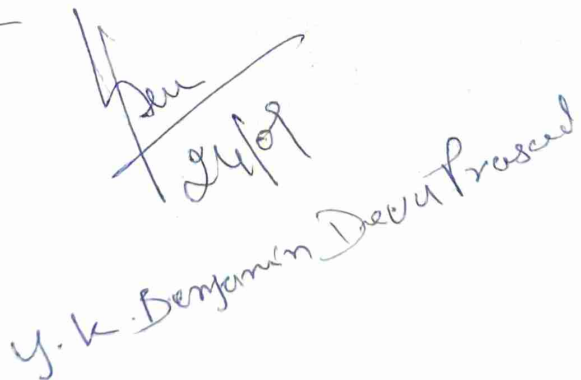 24/09
Y. K. Benjamin Devu Prasad